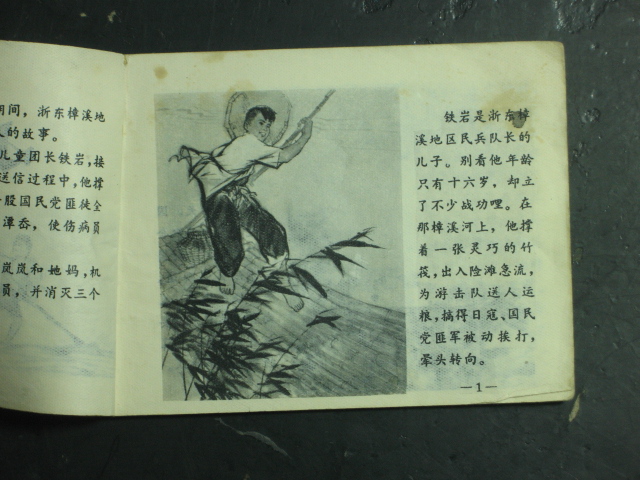 期间，浙东樟溪地
人的故事。
儿童团长铁岩，接
送信过程中，他撑
一股国民党匪徒全
潭岙，使伤病员
岚岚和她妈，机
员，并消灭三个
铁岩是浙东樟
溪地区民兵队长的
儿子。别看他年龄
只有十六岁，却立
了不少战功哩。在
那樟溪河上，他撑
着一张灵巧的竹
筏，出入险滩急流，
为游击队送人运
粮，搞得日寇、国民
党匪军被动挨打，
晕头转向。
—1—